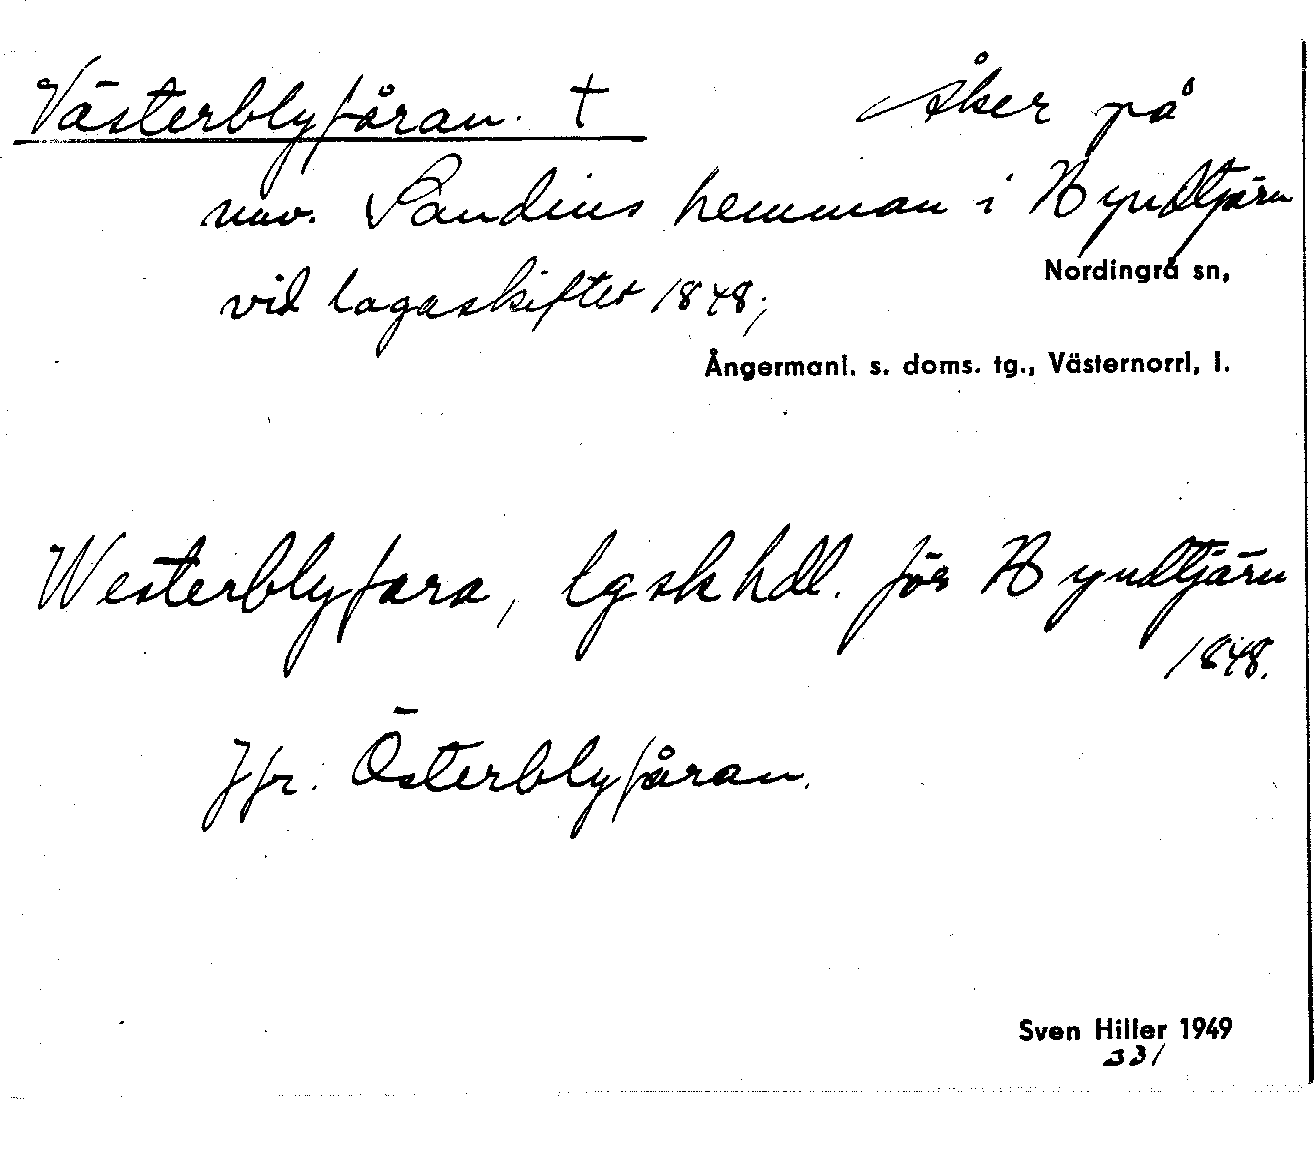 Västerblyfåran. † Åker på
nuv. Sandins hemman i Häyndtjärn
vid lagaskiftet 1848;
Nordingrå sn,
Ångermanl. s. doms. tg., Västernorrl, l.
Westerblyfara, lgskhdl. för Byndtjärn
1848.
Jfr. Österblyfåran.
Sven Hiller 1949
331